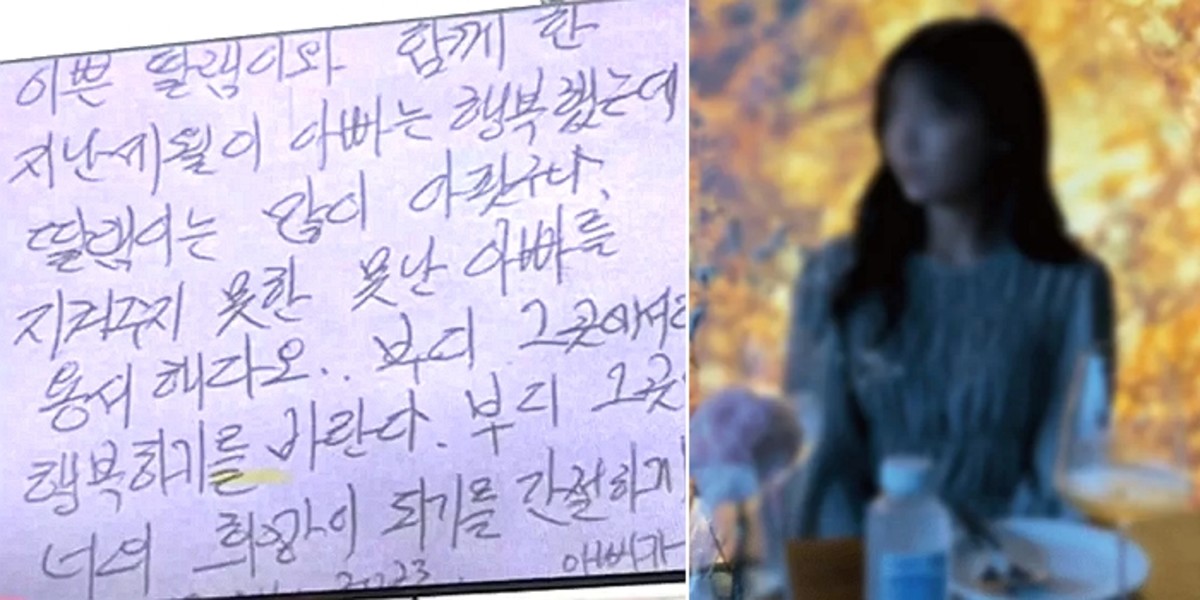 이쁜 딸램이와 함께 한
지난세월이 아빠는 행복했는데
딸램이는 많이 아팟구나,
지켜주지 못한 못난 아빠를
용서해다오.. 부디 그곳에서
행복하기를 바란다. 부디 그곳
너의 희망이 되기를 간절하게
2023. 아빠가